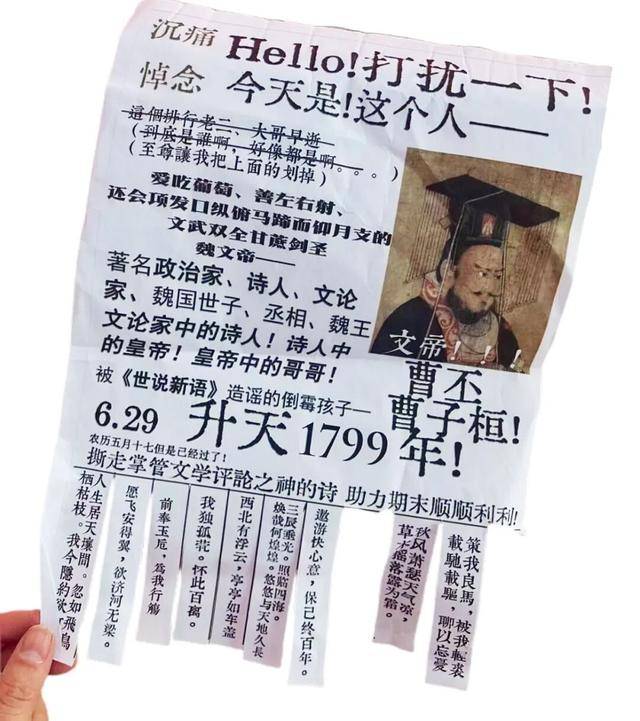 沉痛
悼念
Hello!打扰一下!
今天是!这个人——
這個排行老二、大哥早逝
(到底是誰啊,好像都是啊。。。)
(至尊讓我把上面的划掉)
爱吃葡萄、善左右射、
还会项发口纵俯马蹄而仰月支的
文武双全甘蔗剑圣
魏文帝——
著名政治家、诗人、文论
家、魏国世子、丞相、魏王
文论家中的诗人!诗人中
的皇帝!皇帝中的哥哥!
被《世说新语》造谣的倒霉孩子—
文帝!!!
曹丕
曹子桓!
6.29 升天1799年!
农历五月十七但是已经过了!
撕走掌管文学评论之神的诗 助力期末顺顺利利!
人生居天壤間。忽如飛鳥
栖枯枝。我今隱約欲
愿飞安得翼,欲济河无梁。
前奉玉卮,為我行觴
我独孤茕。怀此百离。
西北有浮云,亭亭如车盖
三辰垂光。照临四海。
焕哉何煌煌。悠悠与天地久長
遨游快心意,保己终百年。
秋风萧瑟天气凉,
草木摇落露为霜。
策我良馬,被我輕裘
載馳載驅,聊以忘憂